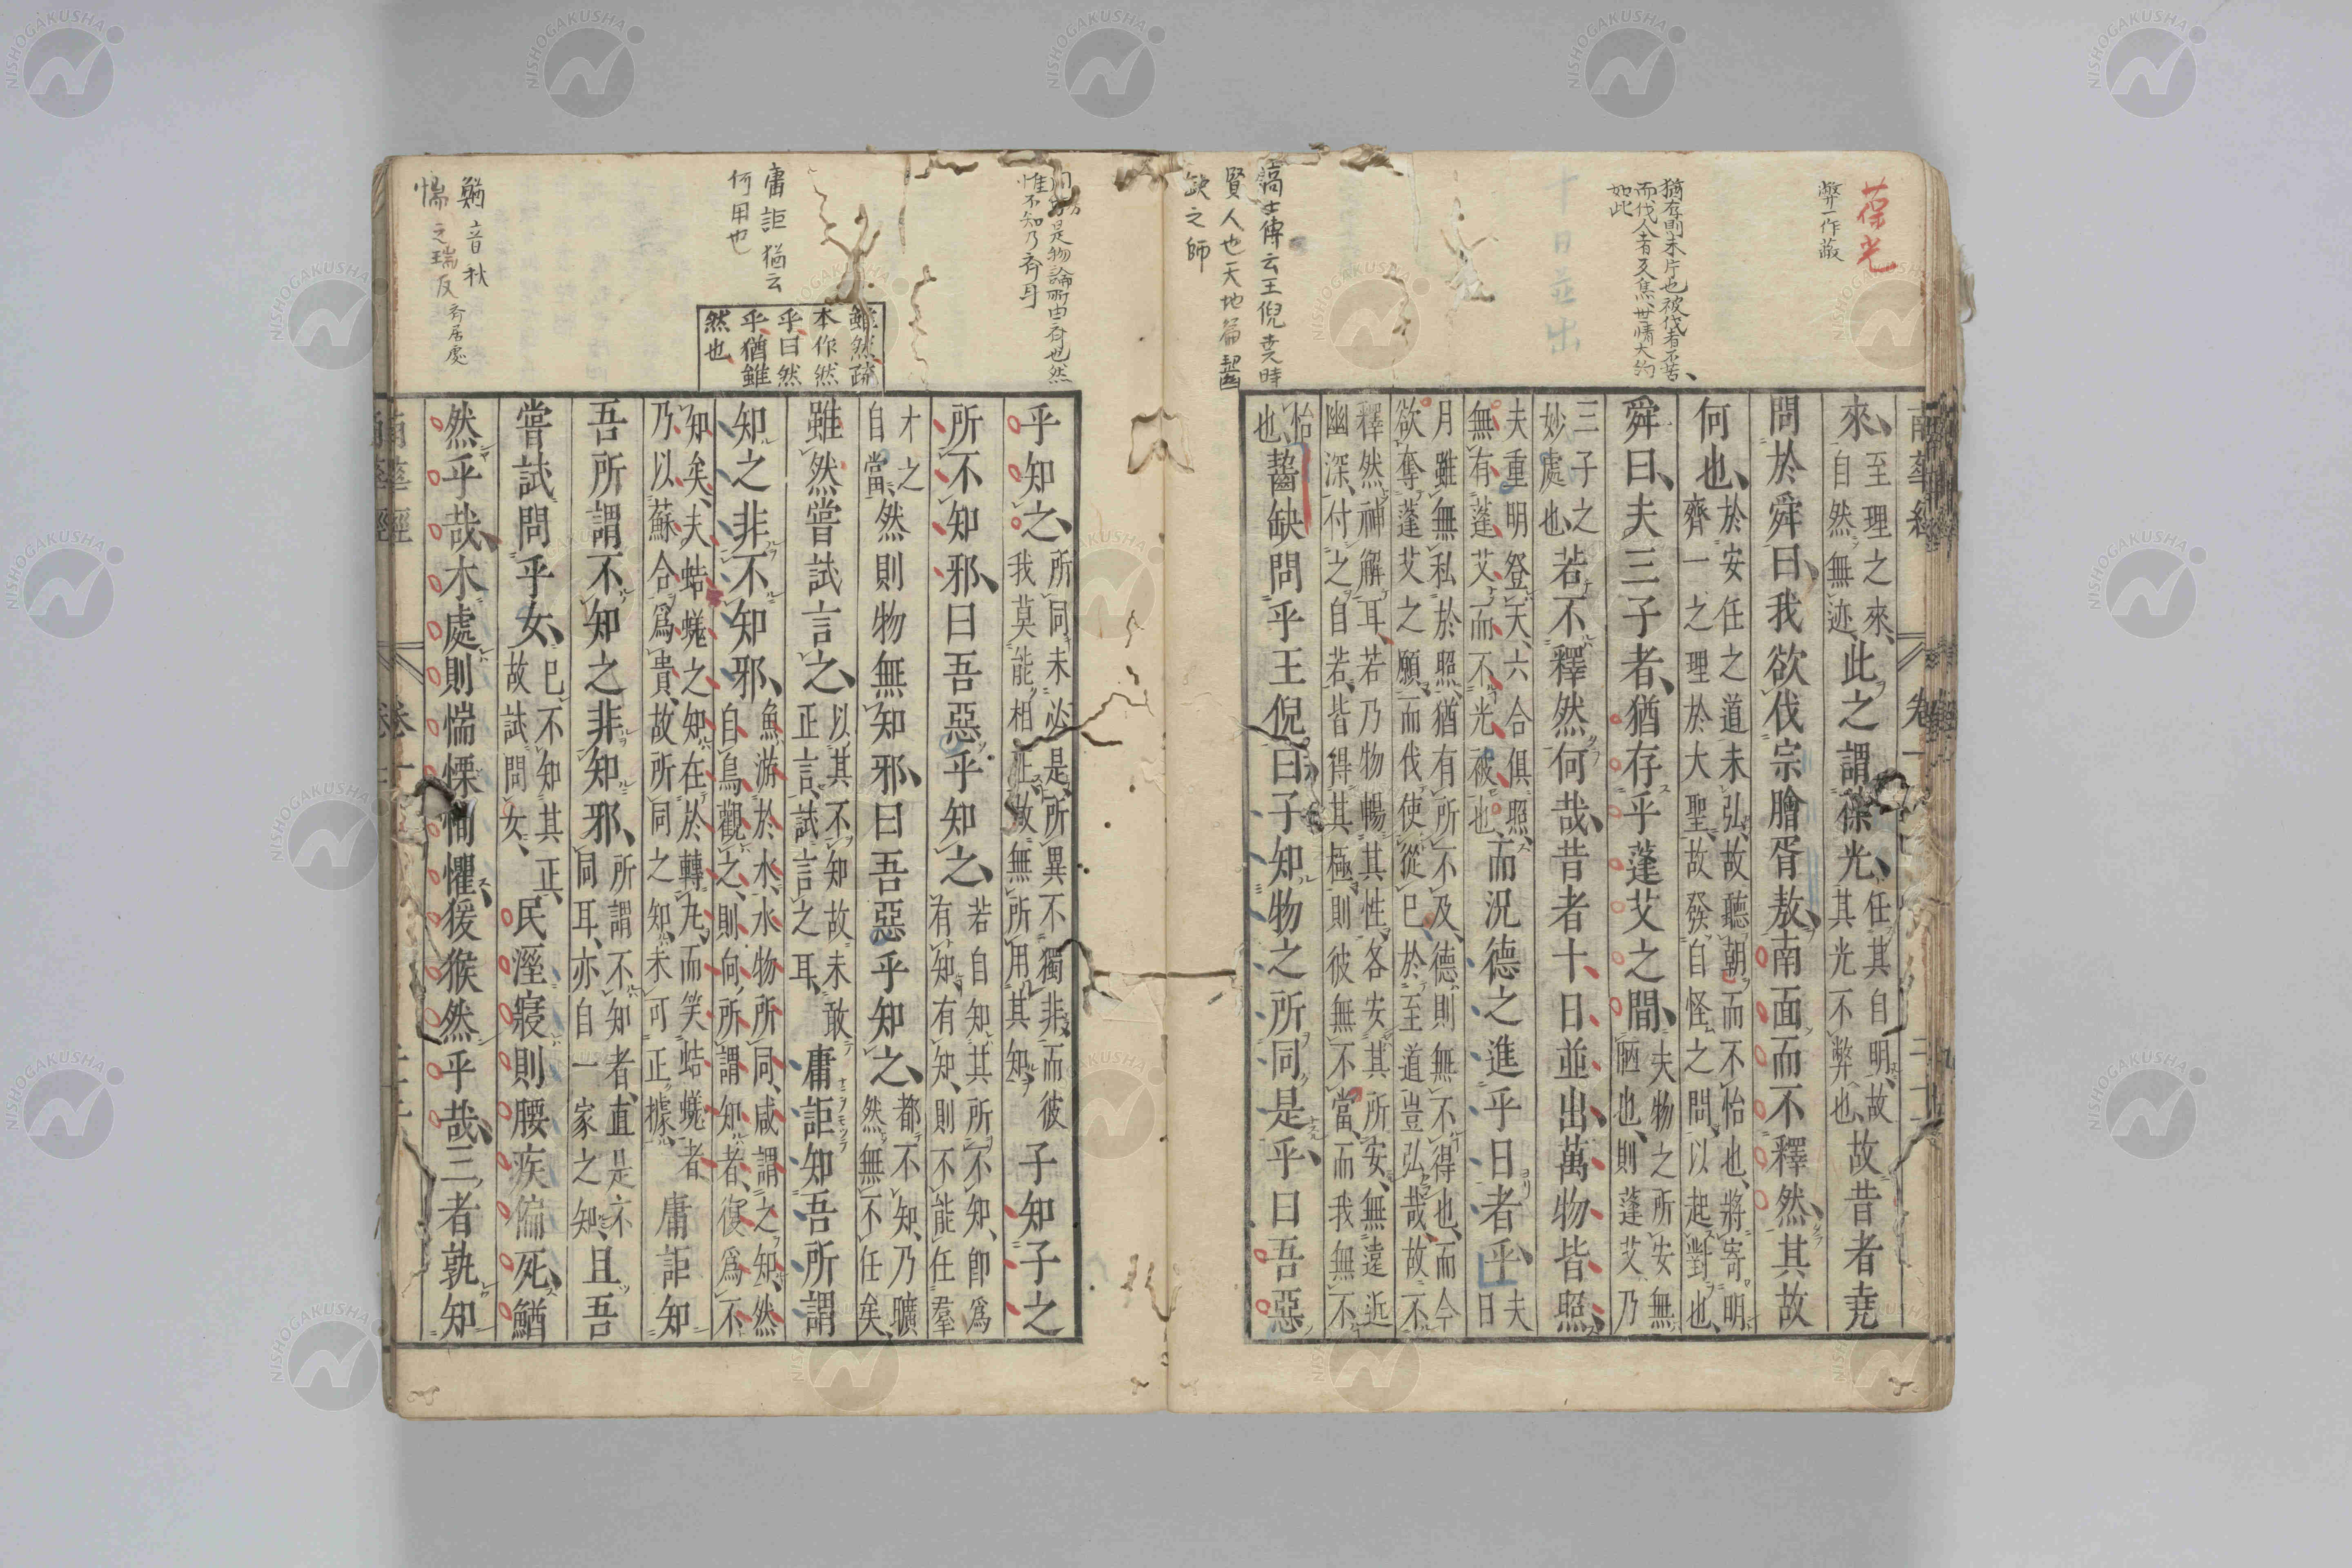 葆光
弊一作蔽
猶存則未片也被伐者不苦、
而伐人者又焦、世情大約
如此
十日並出
高士傳云王倪堯時
賢人也天地篇齧
缺之師
南華經 卷一
來、至理之來、自然無迹、此之謂葆光、任其自明、故其光不弊也、故昔者堯
問於舜曰、我欲伐宗膾胥敖、南面而不釋然、其故
何也、於安任之道未弘、故聽朝而不怡也、將寄明齊一之理於大聖、故發自怪之問、以起對也、
舜曰、夫三子者、猶存乎蓬艾之間、夫物之所安無陋也、則蓬艾乃
三子之妙處也、若不釋然何哉、昔者十日並出、萬物皆照、
夫重明登天、六合俱照、無有蓬艾而不光被也、而況德之進乎日者乎、夫日
月雖無私於照、猶有所不及、德則無不得也、而今欲奪蓬艾之願、而伐使從己、於至道豈弘哉、故不
釋然神解耳、若乃物暢其性、各安其所安、無遠近幽深、付之自若、皆得其極、則彼無不當、而我無不
怡也、齧缺問乎王倪曰、子知物之所同是乎、曰吾惡
惟不知乃齊耳
雖然疏
本作然
乎曰然
乎猶雖
然也
庸詎猶云
何用也
鰌音秋
惴之瑞反
乎知之、所同未必是、所異不獨非、而彼我莫能相正、故無所用其知、子知子之
所不知邪、曰吾惡乎知之、若自知其所不知、即爲有知、有知、則不能任羣
才之自當、然則物無知邪、曰吾惡乎知之、都不知、乃曠然無不任矣、
雖然嘗試言之、以其不知故未敢正言、試言之耳、庸詎知吾所謂
知之非不知邪、魚游於水、水物所同、咸謂之知、然自鳥觀之、則向所謂知者、復爲不
知矣、夫蛣蜣之知在於轉丸、而笑蛣蜣者乃以蘇合爲貴、故所同之知、未可正據、庸詎知
吾所謂不知之非知邪、所謂不知者、直是不同耳、亦自一家之知、且吾
嘗試問乎女、己不知其正、故試問女、民溼寢則腰疾偏死、鰌
然乎哉、木處則惴慄恂懼、猨猴然乎哉、三者孰知
南華經 卷一